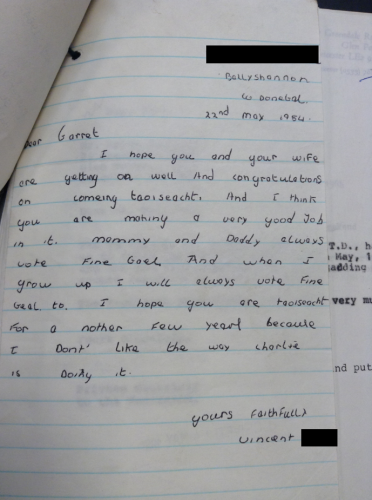 Ballyshannon
W. Donegal.
22nd May 1984.
Dear Garret
I hope you and your wife
are getting on well And congratulations
on comeing taoiseacht. And I think
you are making a very good Job
in it. mommy and Daddy always
vote Fine Gael And when I
grow up I will always vote Fine
Gael to. I hope you are taoiseacht
For a nother Few years because
I Dont' like the way charlie
is Doing it.
yours Faithfully
Vincent
T.D., h
May, 1
adding
very mu
nd put